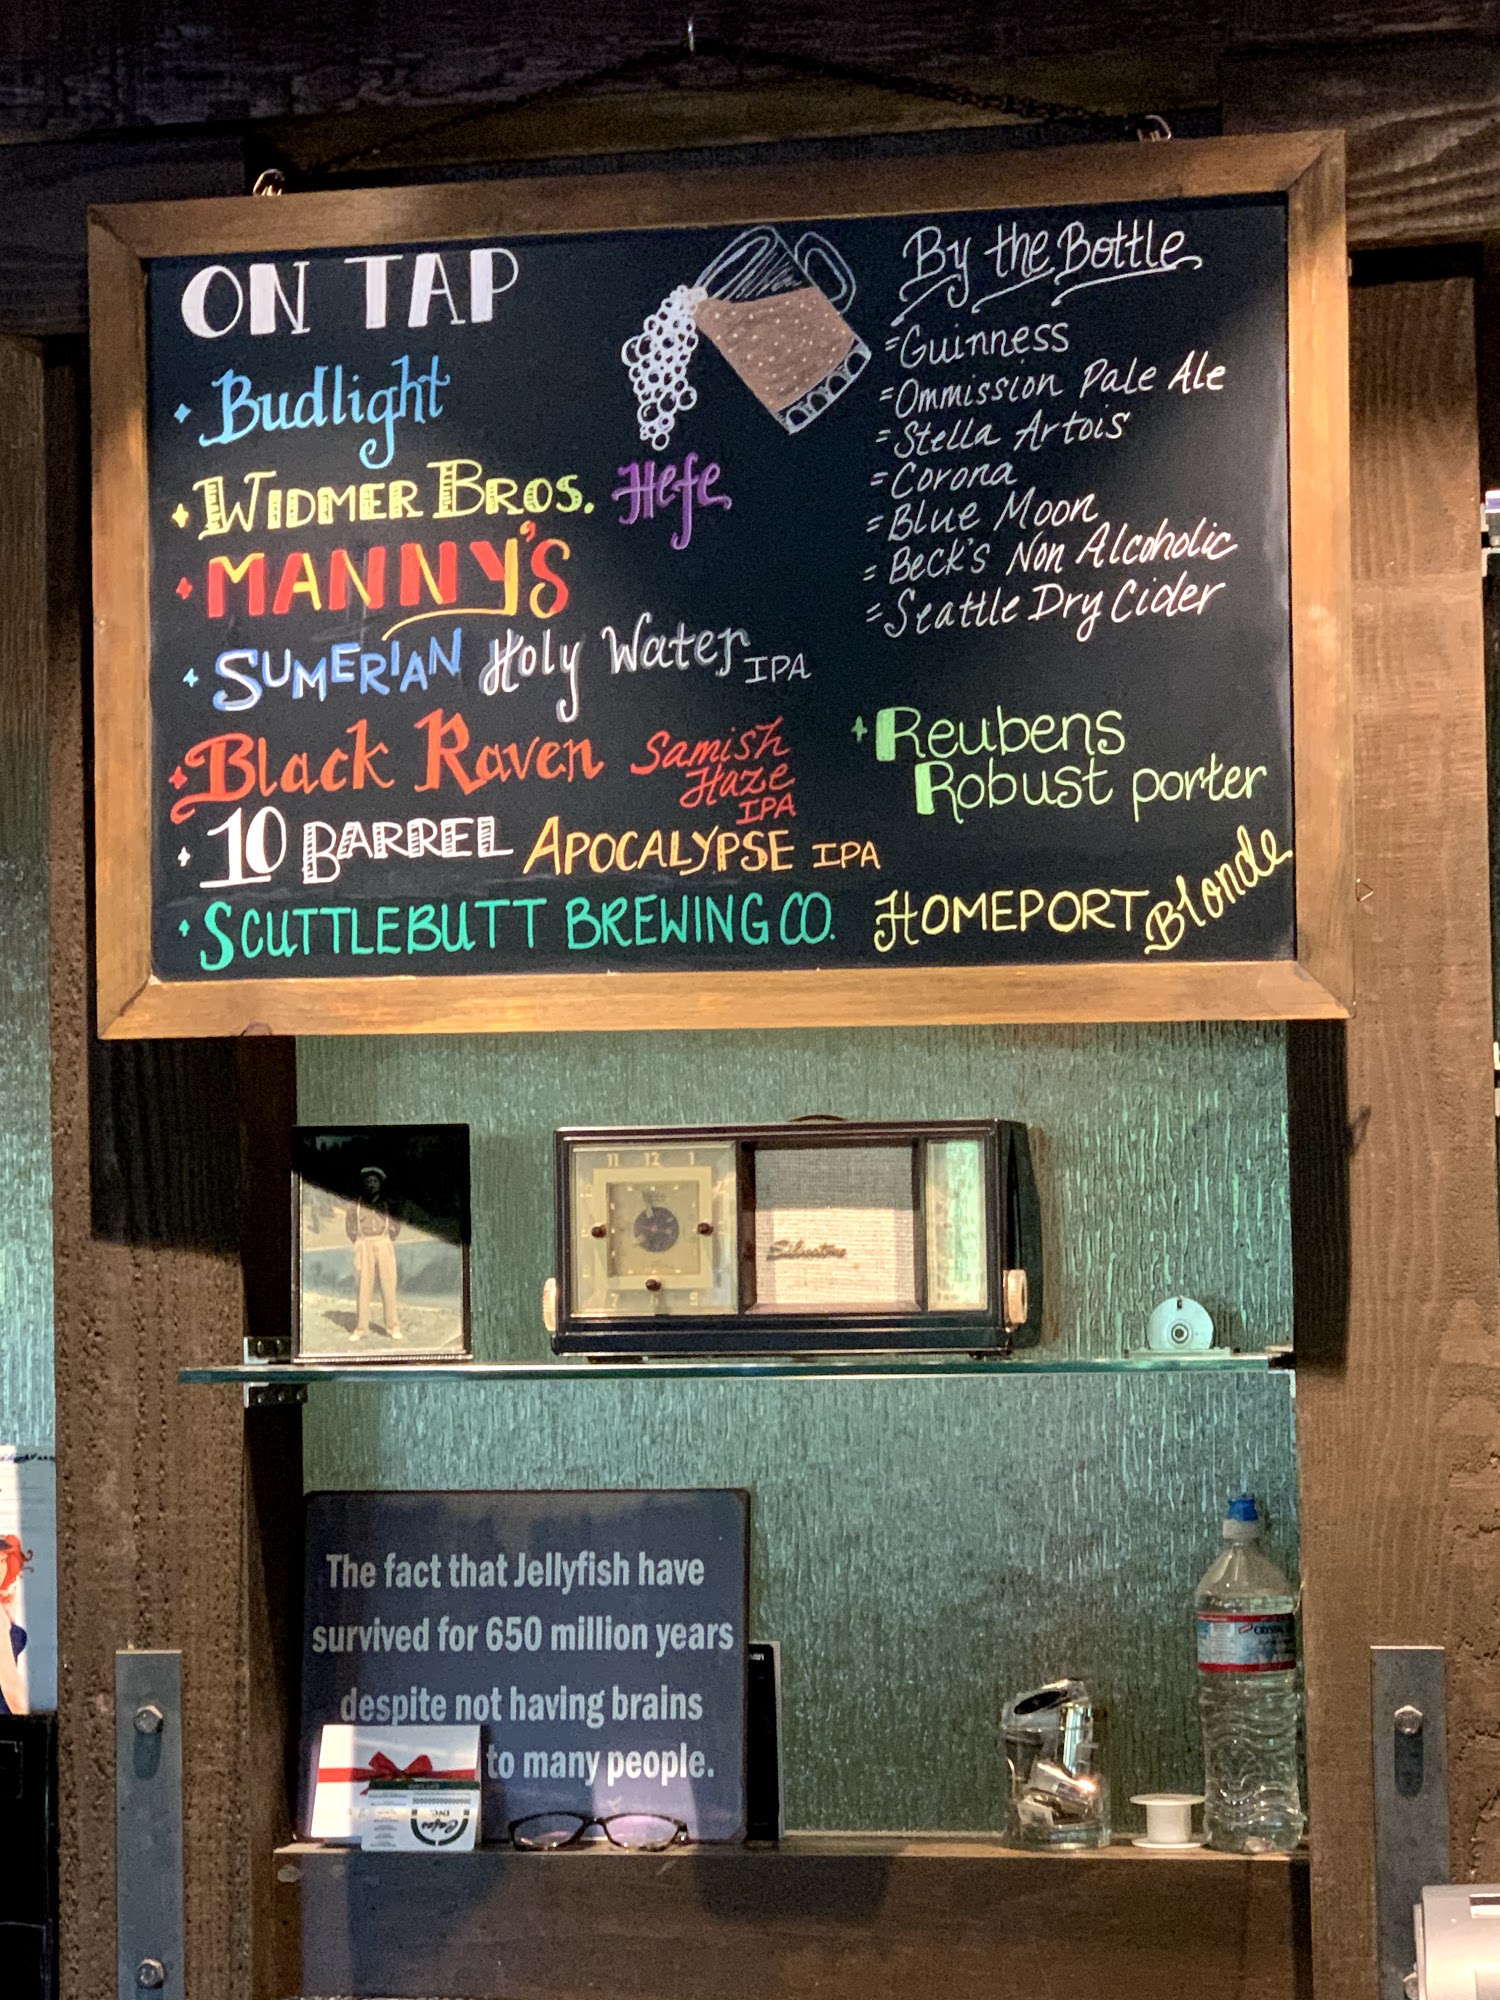 ON TAP
Budlight
WIDMER BROS. Hefe
MANNY'S
SUMERIAN Holy Water IPA
Black Raven Samish
Haze
IPA
10 BARREL APOCALYPSE IPA
SCUTTLEBUTT BREWING CO. HOMEPORT Blonde
By the Bottle
=Guinness
=Ommission Pale Ale
=Stella Artois
=Corona
=Blue Moon
=Beck's Non Alcoholic
=Seattle Dry Cider
Reubens
Robust porter
11 12 1
Silvertone
The fact that Jellyfish have
survived for 650 million years
despite not having brains
to many people.
INC.
CRYSTAL